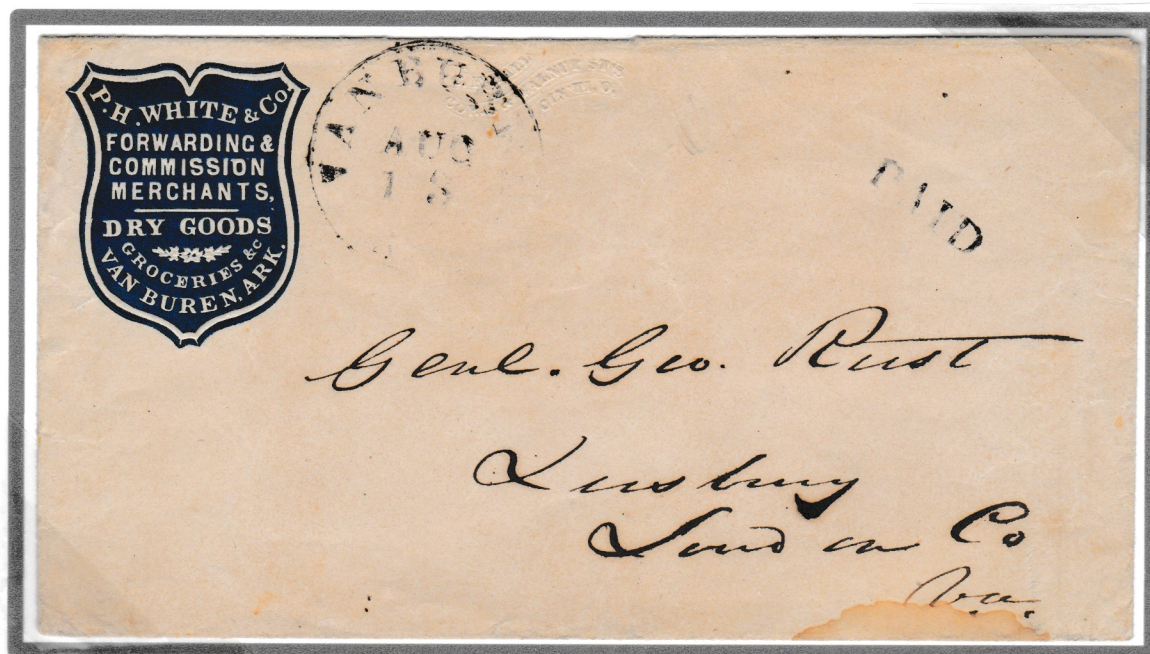 P.H. WHITE & Co.
FORWARDING &
COMMISSION
MERCHANTS,
DRY GOODS
GROCERIES &c
VAN BUREN, ARK.
VAN BU
AUG
PAID
Genl. Geo. Rust
Leesburg
Loudon Co
Va.